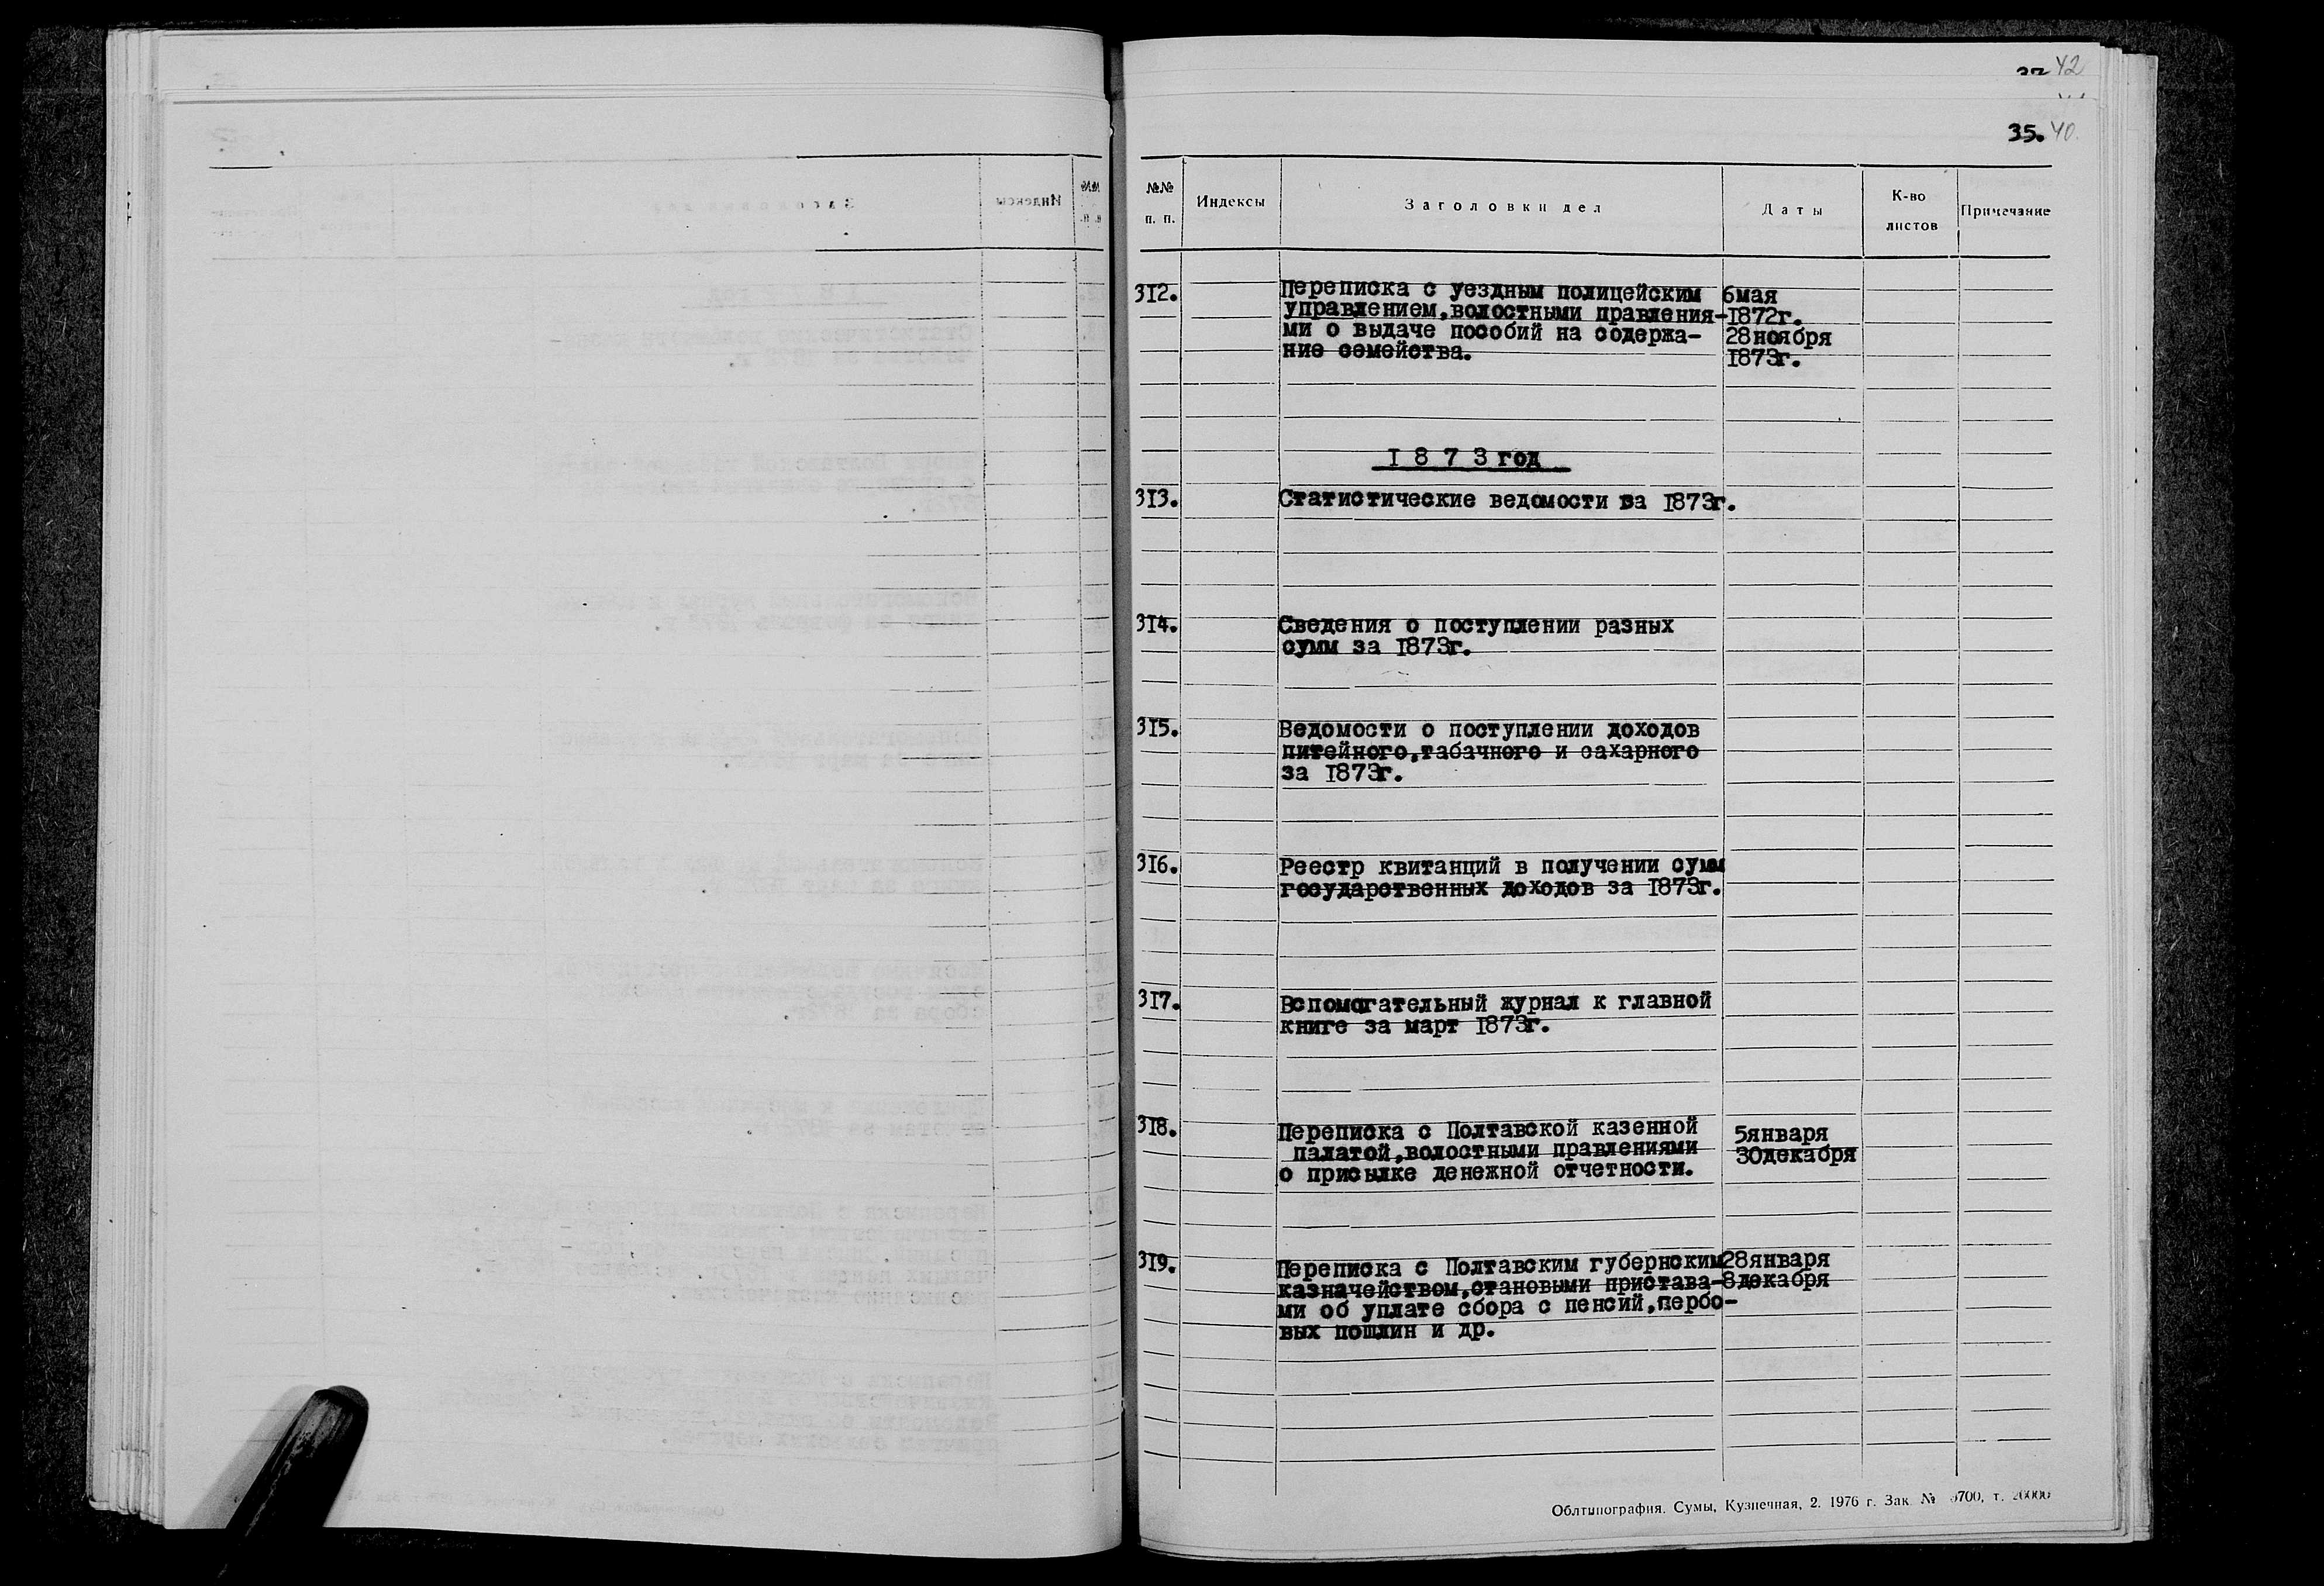 42
35. 40.
№№ п. п. Индексы Заголовки дел Даты К-во листов Примечание
312. Переписка с уездным полицейским 6мая
управлением,волостными правления- 1872г.
ми о выдаче пособий на содержа- 28ноября
ние семейства. 1873г.
1 8 7 3 год
313. Статистические ведомости за 1873г.
314. Сведения о поступлении разных
сумм за 1873г.
315. Ведомости о поступлении доходов
питейного,табачного и сахарного
за 1873г.
316. Реестр квитанций в получении сумм
государственных доходов за 1873г.
317. Вспомогательный журнал к главной
книге за март 1873г.
318. Переписка с Полтавской казенной 5января
палатой,волостными правлениями 30декабря
о присылке денежной отчетности.
319. Переписка с Полтавским губернским 28января
казначейством,становыми пристава- 8декабря
ми об уплате сбора с пенсий,гербо-
вых пошлин и др.
Облтипография. Сумы, Кузнечная, 2. 1976 г. Зак. №